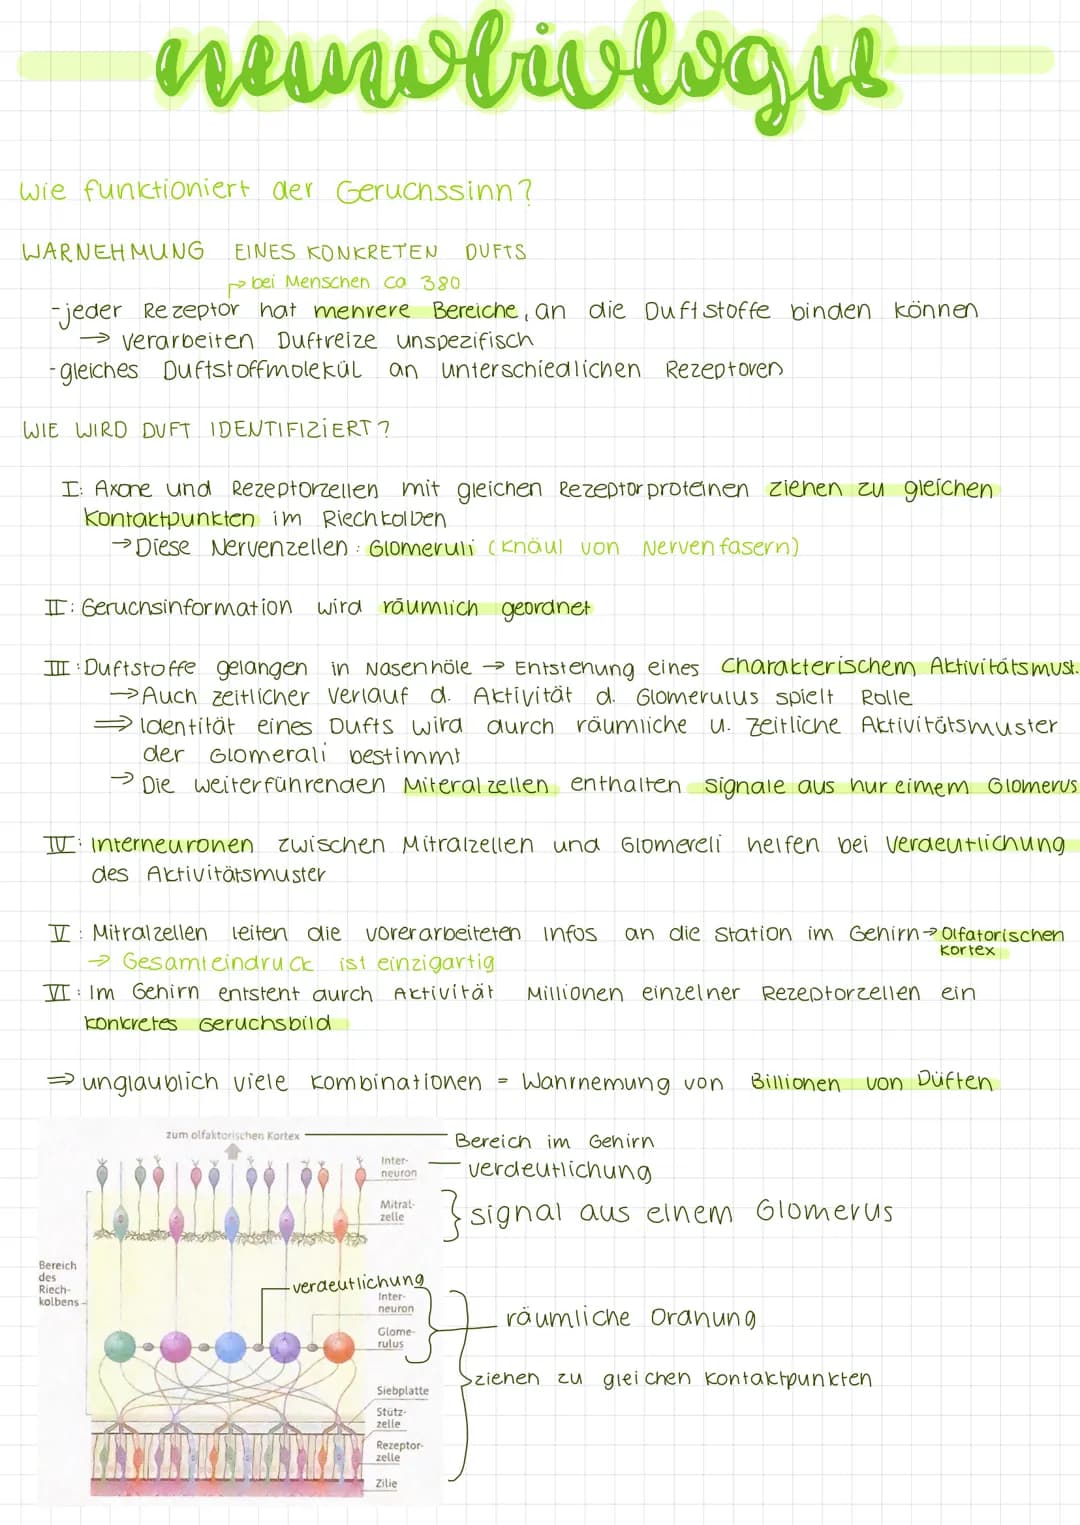 neurobiologie
Wie funktioniert der Geruchssinn?
WARNEHMUNG EINES KONKRETEN DUFTS
bei Menschen ca 380
-jeder Rezeptor hat mehrere Bereiche, an die Duftstoffe binden können
→ verarbeiten Duftreize unspezifisch
-gleiches Duftstoffmolekül an unterschiedlichen Rezeptoren
WIE WIRD DUFT IDENTIFIZIERT?
I: Axone und Rezeptorzellen mit gleichen Rezeptorproteinen ziehen zu gleichen
Kontaktpunkten im Riechkolben
→ Diese Nervenzellen: Glomeruli (Knäul von Nervenfasern)
II: Geruchsinformation wird räumlich geordnet
III: Duftstoffe gelangen in Nasenhöle → Entstehung eines Charakterischem Aktivitätsmust.
→ Auch zeitlicher Verlauf d. Aktivität d. Glomerulus spielt Rolle
⇒ Identität eines Dufts wird durch räumliche u. zeitliche Aktivitätsmuster
der Glomerali bestimmt
→ Die weiterführenden Miteralzellen enthalten Signale aus nur eimem Glomerus
IV: Interneuronen zwischen Mitralzellen und Glomereli helfen bei Verdeutlichung
des Aktivitätsmuster
V: Mitralzellen leiten die vorerarbeiteten Infos an die Station im Gehirn → Olfatorischen
Kortex
→ Gesamteindruck ist einzigartig
VI: Im Gehirn entsteht durch Aktivität Millionen einzelner Rezeptorzellen ein
konkretes Geruchsbild
⇒ unglaublich viele Kombinationen = Wahrnemung von Billionen von Düften
zum olfaktorischen Kortex
Bereich im Gehirn
Inter-
neuron
verdeutlichung
Mitral-
zelle
signal aus einem Glomerus
Bereich
des
Riech-
kolbens
verdeutlichung
Inter-
neuron
räumliche Ordnung
Glome-
rulus
ziehen zu gleichen Kontaktpunkten
Siebplatte
Stütz-
zelle
Rezeptor-
zelle
Zilie